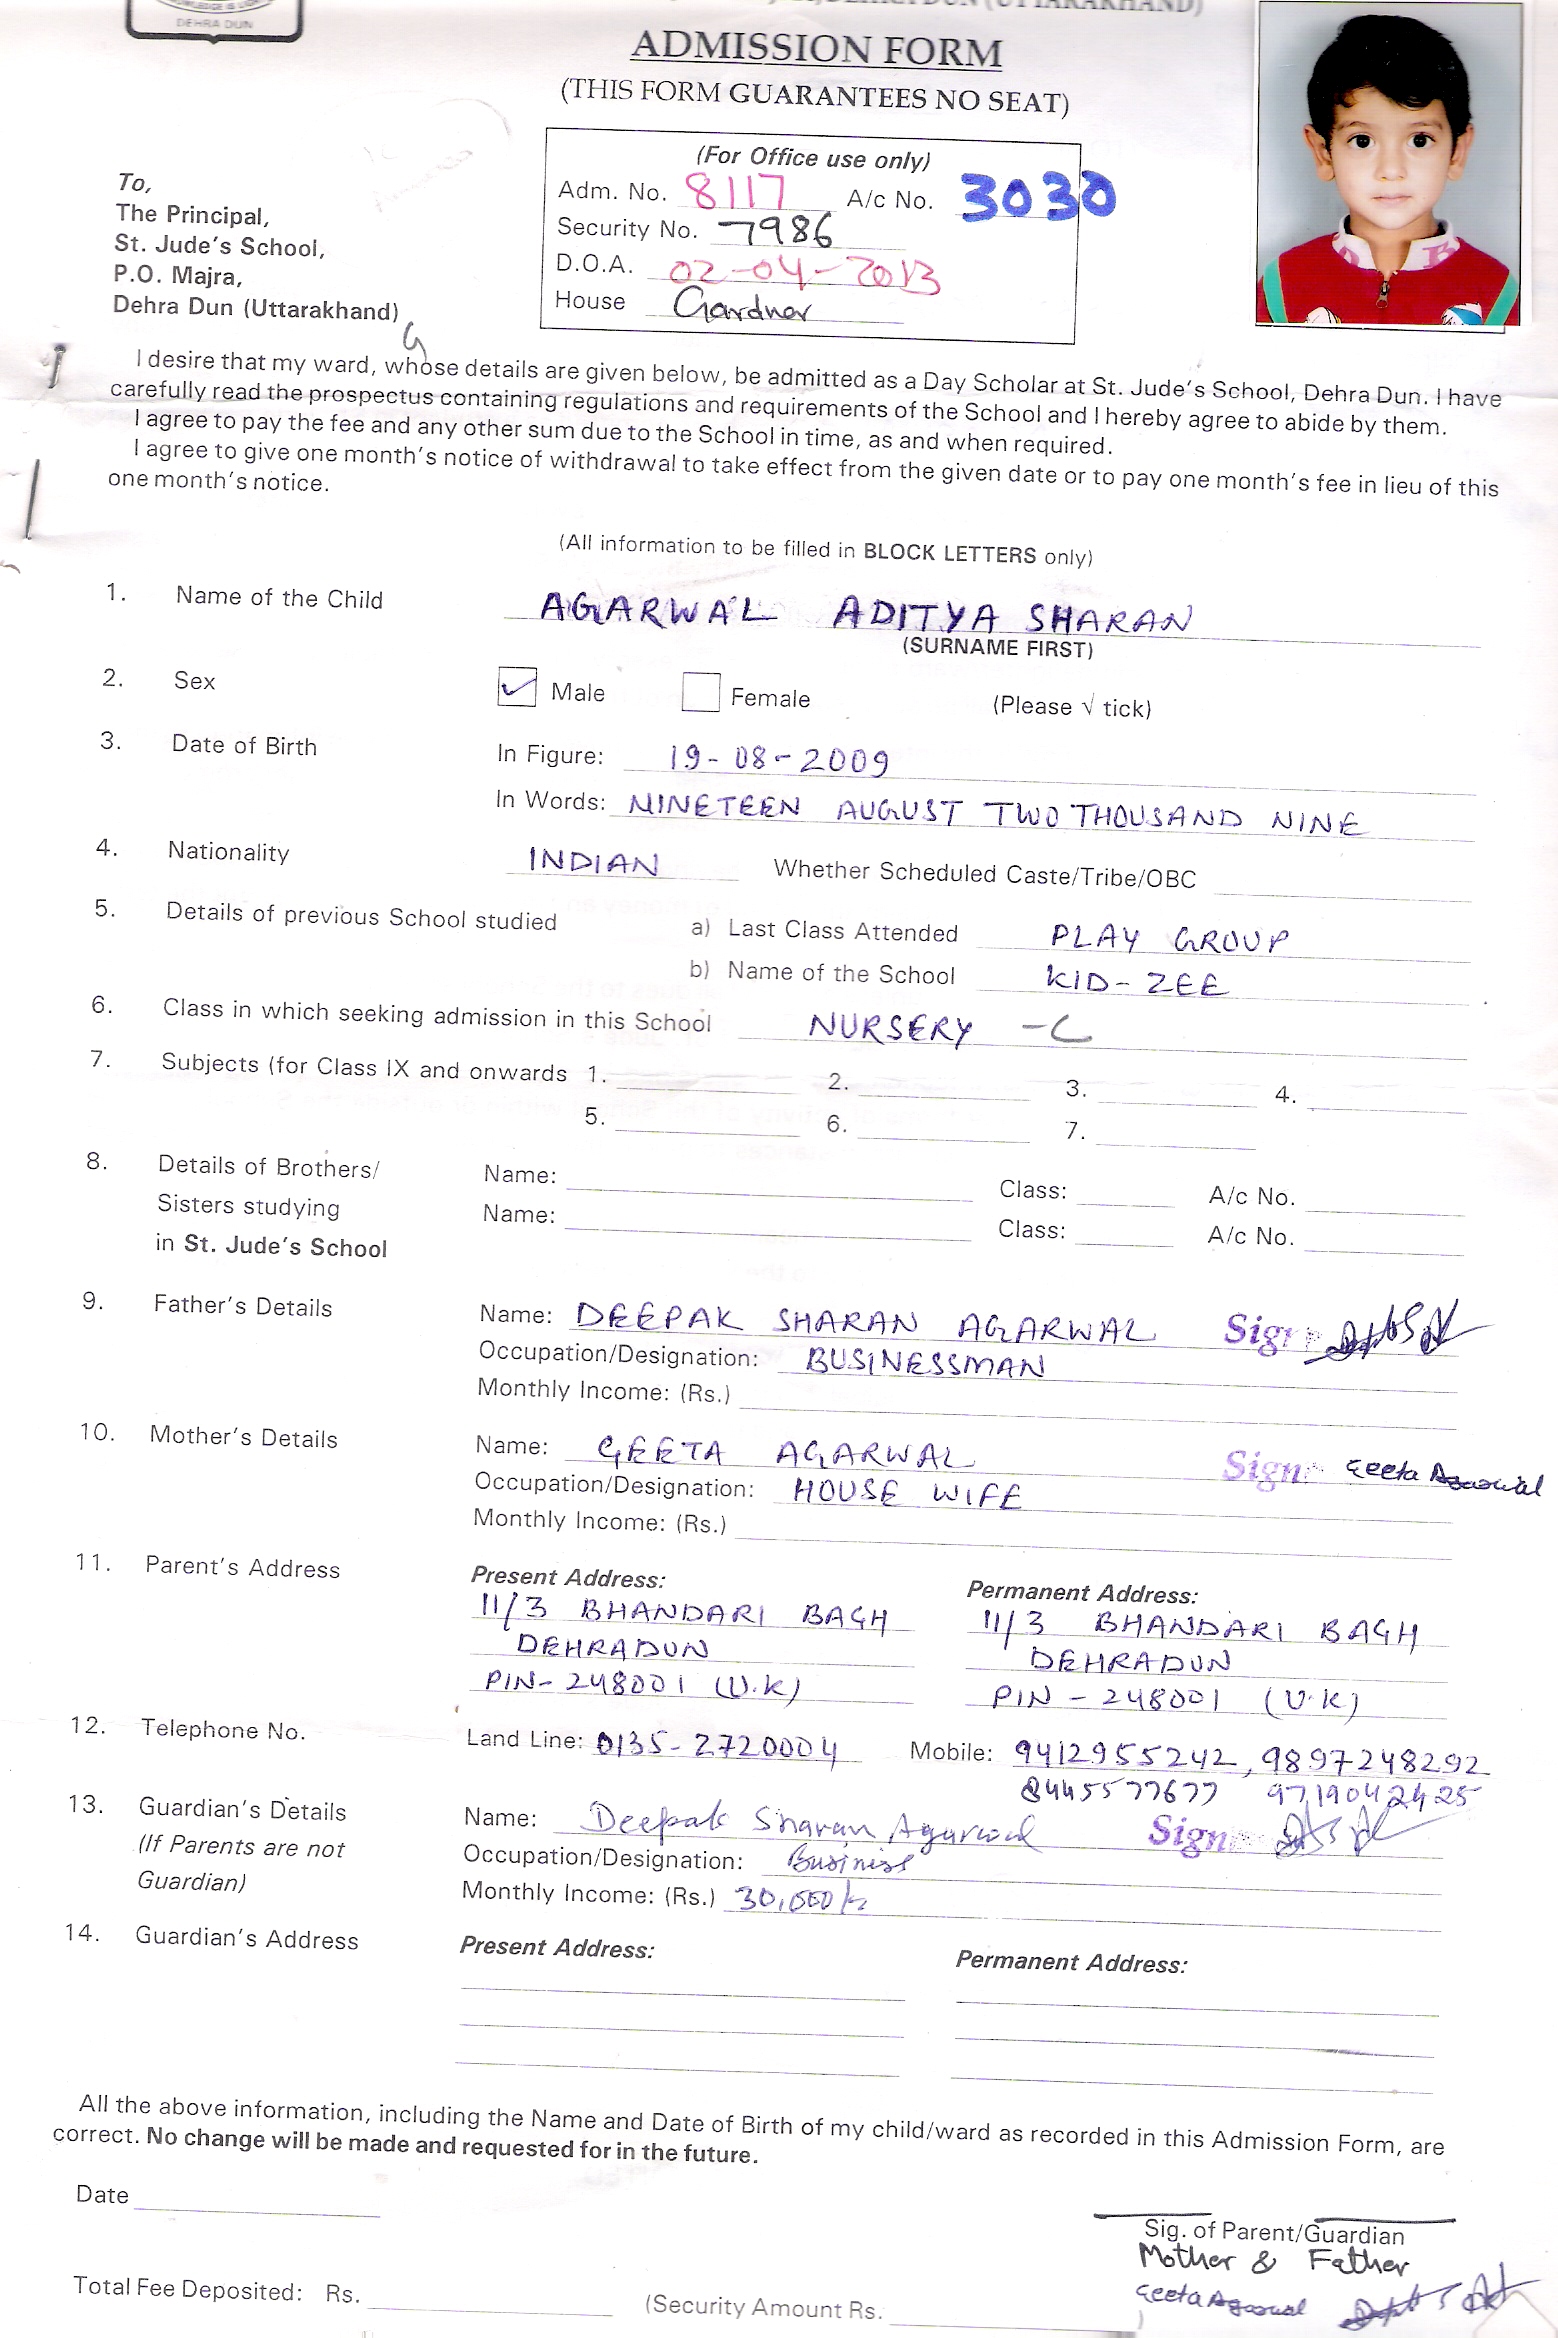 DEHRA DUN
ADMISSION FORM
(THIS FORM GUARANTEES NO SEAT)
(For Office use only)
Adm. No. 8117 A/c No. 3030
Security No. 7986
D.O.A. 02-04-2013
House Gardner
To,
The Principal,
St. Jude's School,
P.O. Majra,
Dehra Dun (Uttarakhand)
G
I desire that my ward, whose details are given below, be admitted as a Day Scholar at St. Jude's School, Dehra Dun. I have
carefully read the prospectus containing regulations and requirements of the School and I hereby agree to abide by them.
I agree to pay the fee and any other sum due to the School in time, as and when required.
I agree to give one month's notice of withdrawal to take effect from the given date or to pay one month's fee in lieu of this
one month's notice.
(All information to be filled in BLOCK LETTERS only)
1. Name of the Child AGARWAL ADITYA SHARAN
(SURNAME FIRST)
2. Sex Male Female (Please √ tick)
3. Date of Birth In Figure: 19-08-2009
In Words: NINETEEN AUGUST TWO THOUSAND NINE
4. Nationality INDIAN Whether Scheduled Caste/Tribe/OBC
5. Details of previous School studied a) Last Class Attended PLAY GROUP
b) Name of the School KID-ZEE
6. Class in which seeking admission in this School NURSERY -C
7. Subjects (for Class IX and onwards 1. 2. 3. 4.
5. 6. 7.
8. Details of Brothers/ Name: Class: A/c No.
Sisters studying Name: Class: A/c No.
in St. Jude's School
9. Father's Details Name: DEEPAK SHARAN AGARWAL Sign
Occupation/Designation: BUSINESSMAN
Monthly Income: (Rs.)
10. Mother's Details Name: GEETA AGARWAL Sign Geeta Agarwal
Occupation/Designation: HOUSE WIFE
Monthly Income: (Rs.)
11. Parent's Address Present Address: Permanent Address:
11/3 BHANDARI BAGH 11/3 BHANDARI BAGH
DEHRADUN DEHRADUN
PIN-248001 (U.K) PIN-248001 (U.K)
12. Telephone No. Land Line: 0135-2720004 Mobile: 9412955242, 9897248292
8445577677 9719042425
13. Guardian's Details Name: Deepak Sharan Agarwal Sign
(If Parents are not Occupation/Designation: Business
Guardian) Monthly Income: (Rs.) 30,000/-
14. Guardian's Address Present Address: Permanent Address:
All the above information, including the Name and Date of Birth of my child/ward as recorded in this Admission Form, are
correct. No change will be made and requested for in the future.
Date
Sig. of Parent/Guardian
Mother & Father
Geeta Agarwal
Total Fee Deposited: Rs. (Security Amount Rs. )